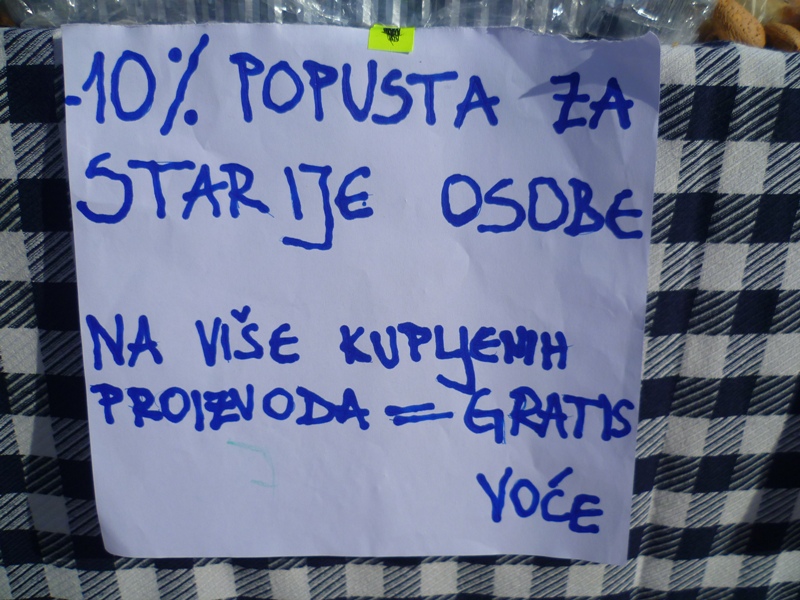 -10% POPUSTA ZA
STARIJE OSOBE
NA VIŠE KUPLJENIH
PROIZVODA = GRATIS
VOĆE